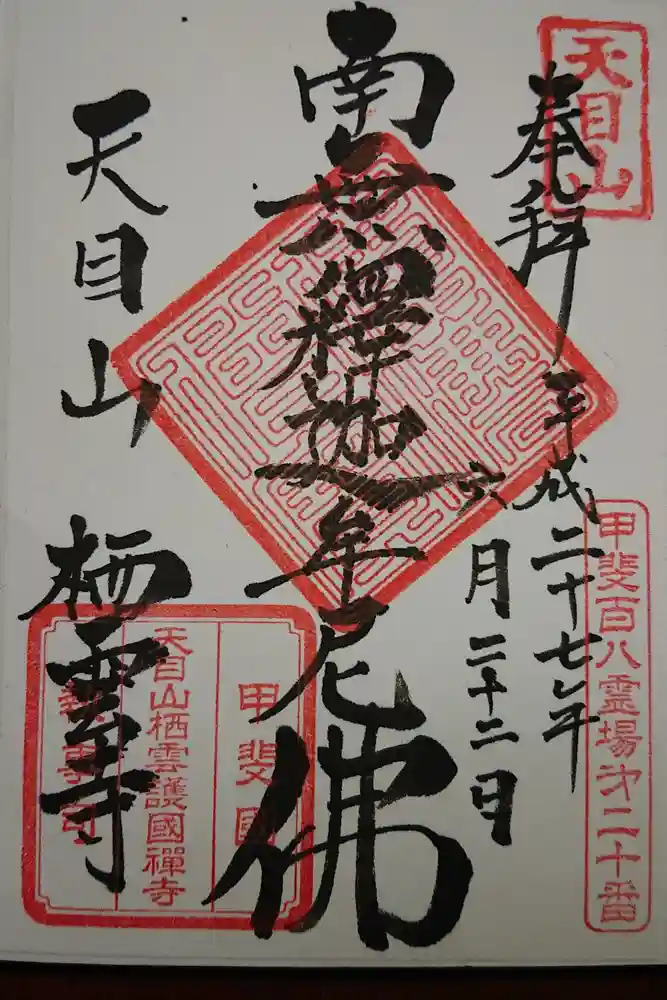 天目山
奉拝
平成二十七年
六月二十二日
甲斐百八霊場第二十番
南無釋迦牟尼佛
天目山
栖雲寺
甲斐國
天目山栖雲護國禅寺